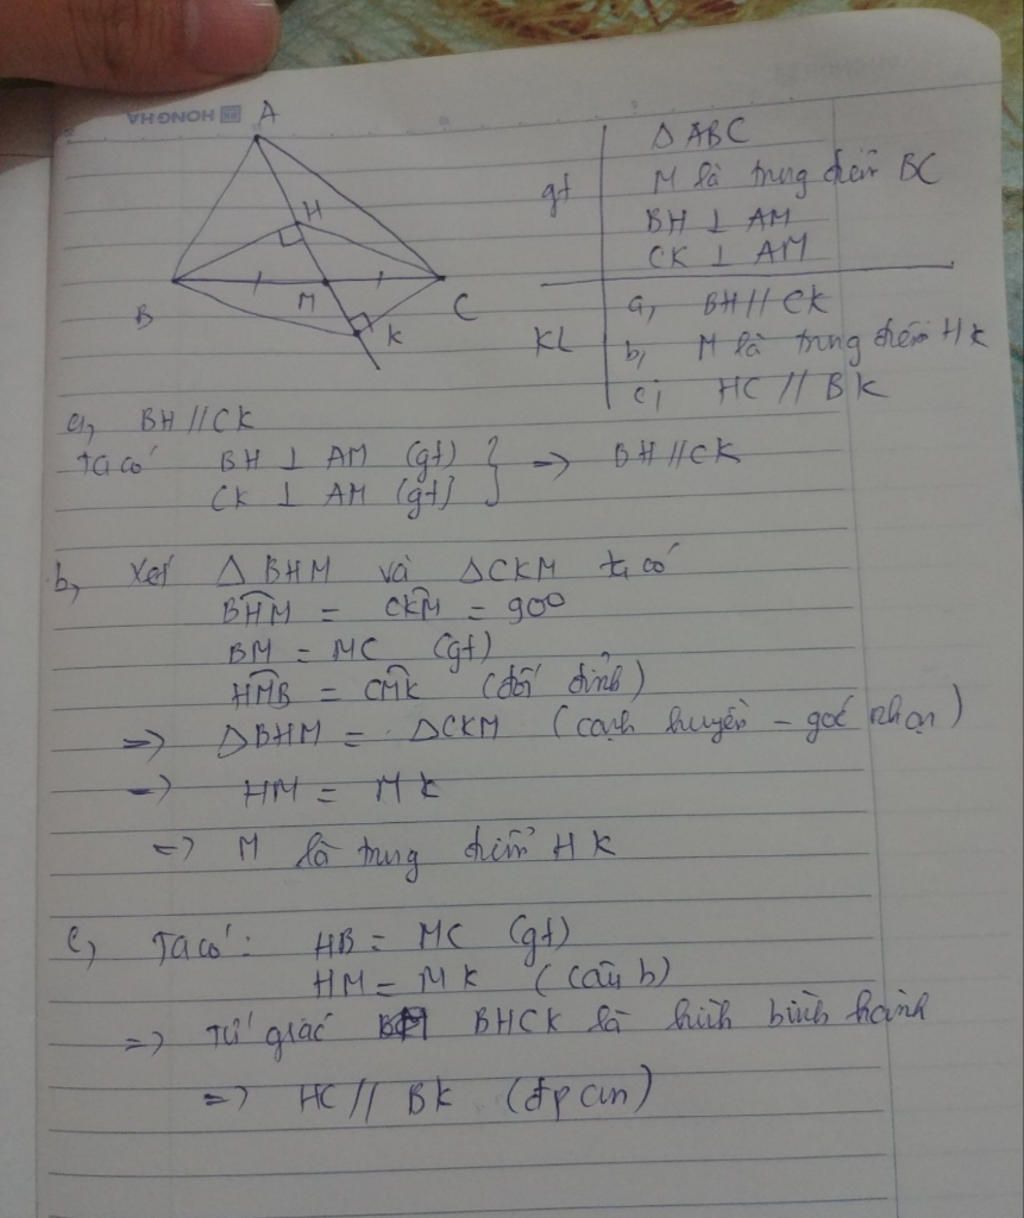 HONGHA
A
H
B
M
C
K
gt
Δ ABC
M là trung điểm BC
BH ⊥ AM
CK ⊥ AM
KL
a, BH // CK
b, M là trung điểm HK
c, HC // BK
a, BH // CK
Ta có BH ⊥ AM (gt)
CK ⊥ AM (gt) } => BH // CK
b, Xét Δ BHM và ΔCKM ta có
BĤM = CK̂M = 90⁰
BM = MC (gt)
HM̂B = CM̂K (đối đỉnh)
=> ΔBHM = ΔCKM (cạnh huyền - góc nhọn)
=> HM = MK
=> M là trung điểm HK
c, Ta có: HB = MC (gt)
HM = MK (câu b)
=> Tứ giác BHCK là hình bình hành
=> HC // BK (đpcm)